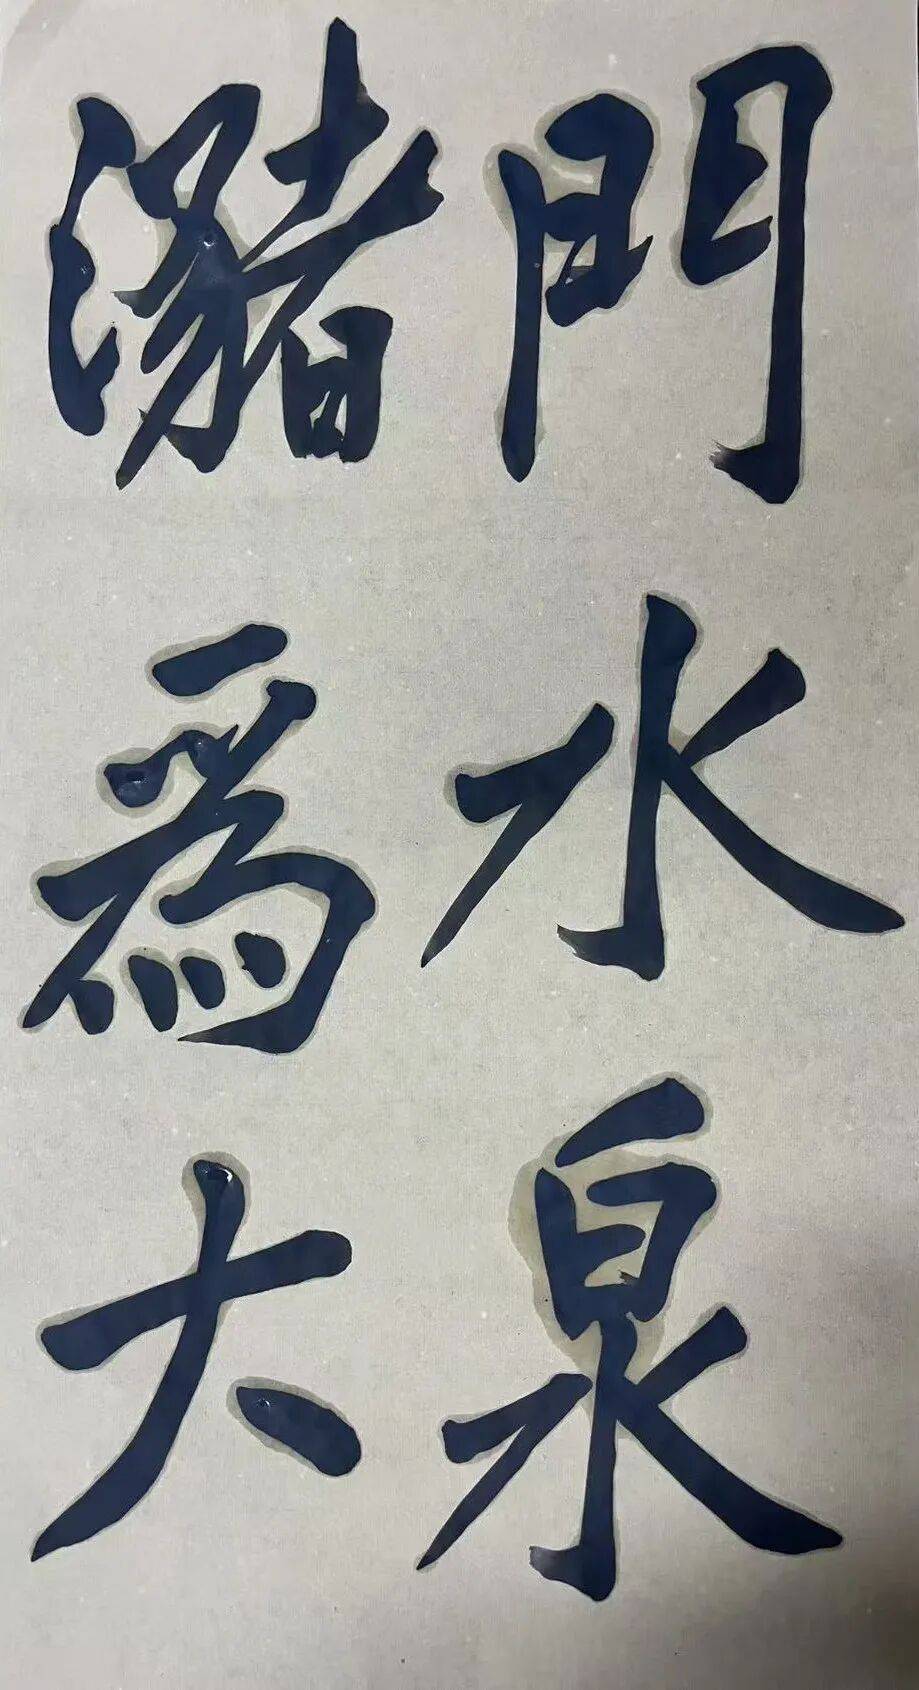 門水泉
瀦爲大